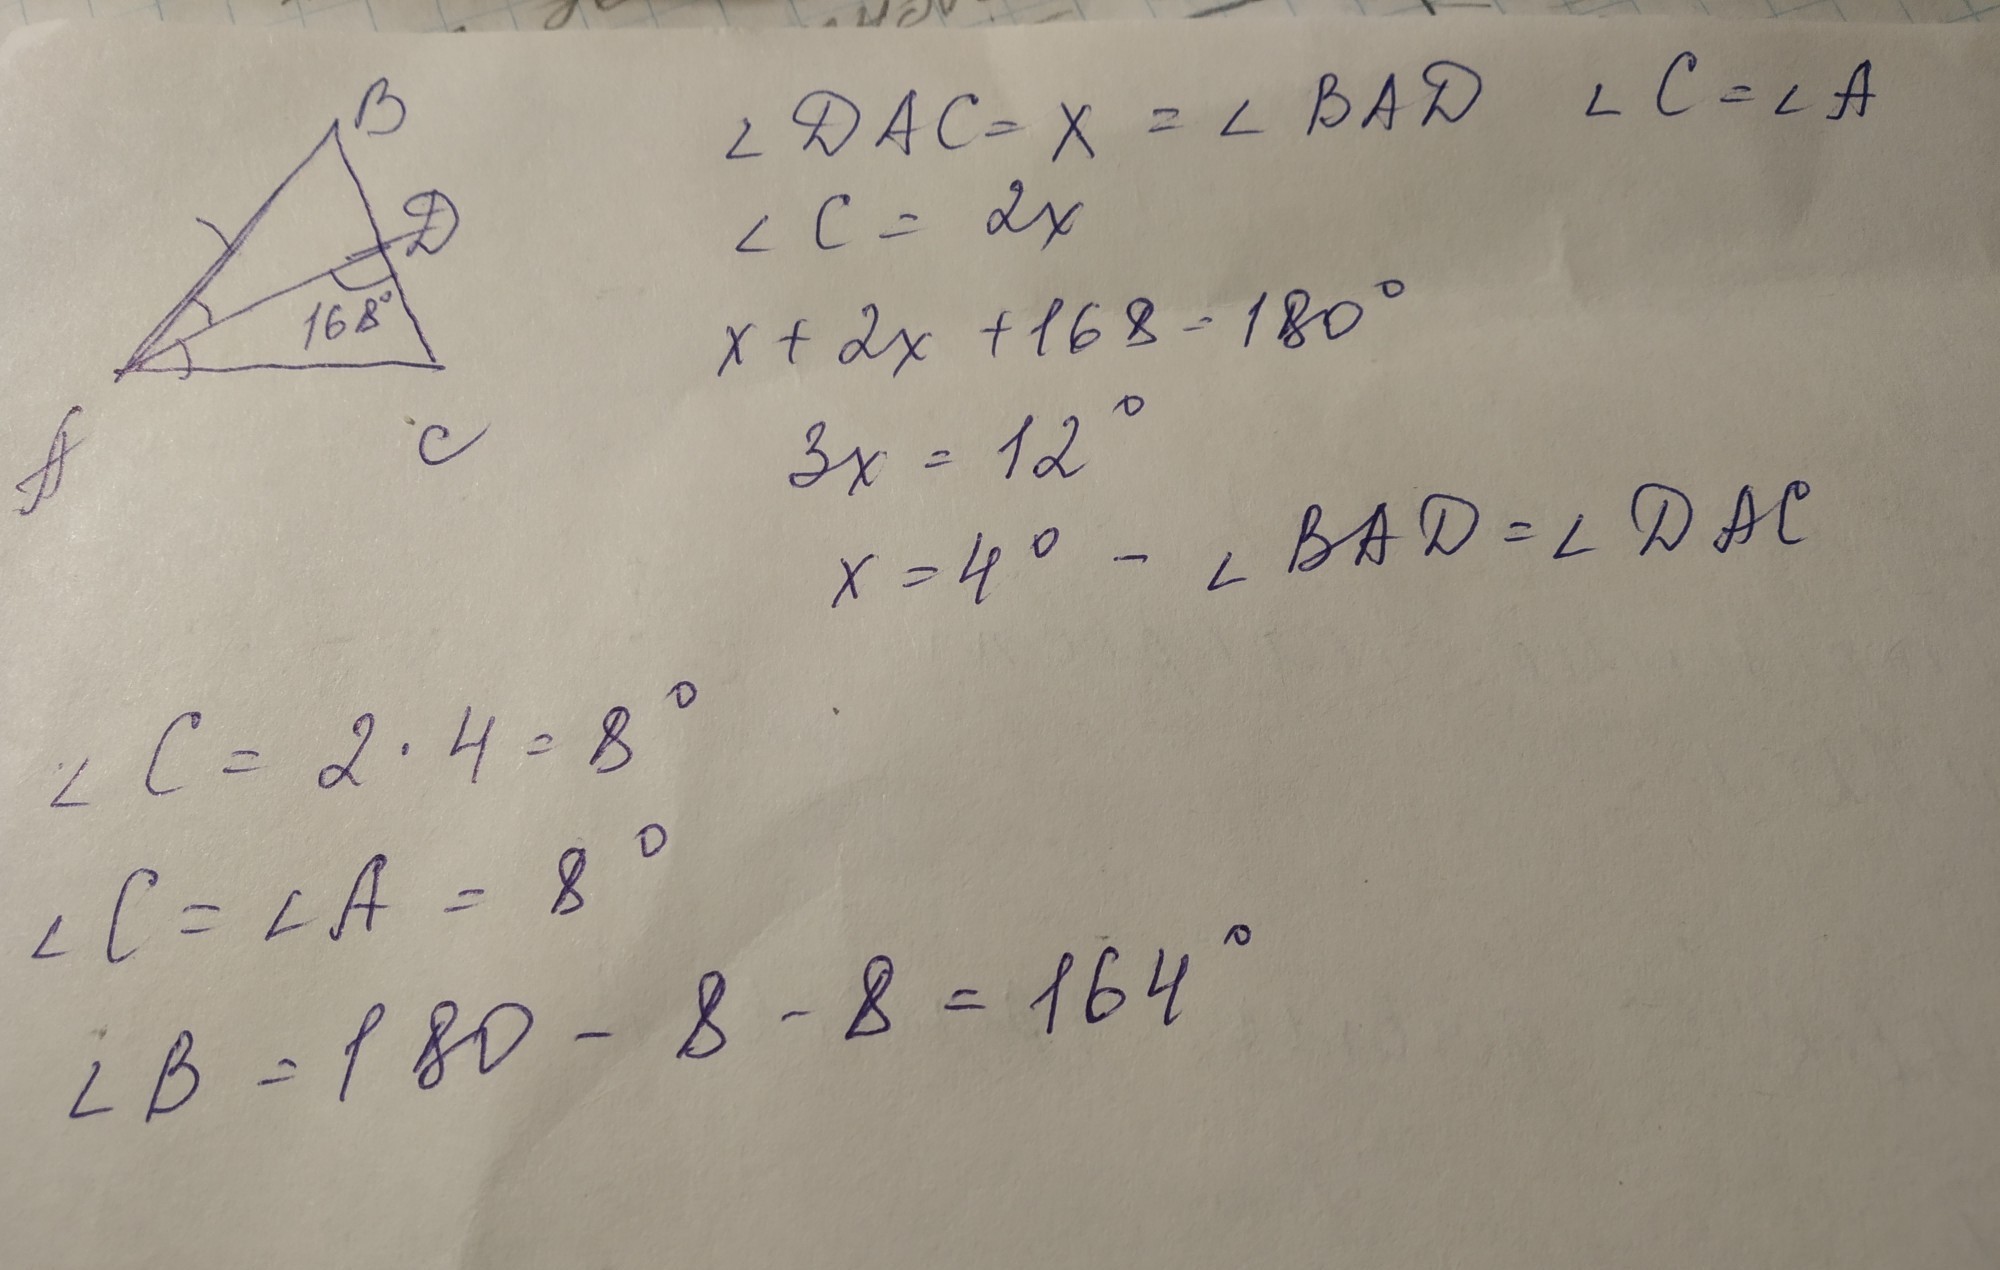 B
D
168°
A
C
∠DAC = x = ∠BAD ∠C = ∠A
∠C = 2x
x + 2x + 168 = 180°
3x = 12°
x = 4° - ∠BAD = ∠DAC
∠C = 2 · 4 = 8°
∠C = ∠A = 8°
∠B = 180 - 8 - 8 = 164°